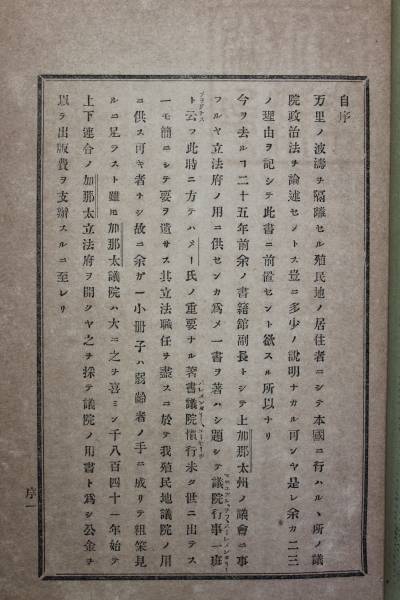 自序
万里ノ波濤ヲ隔離セル殖民地ノ居住者ニシテ本國ニ行ハルヽ所ノ議
院政治法ヲ論述セントス豈ニ多少ノ說明ナカル可ンヤ是レ余カ二三
ノ理由ヲ記シテ此書ニ前置セント欲スル所以ナリ
今ヲ去ルヿ二十五年前余ノ書籍館副長トシテ上加那太州ノ議會ニ事
フルヤ立法府ノ用ニ供センカ爲メ一書ヲ著ハシ題シテ議院行事一班
ト云フ此時ニ方テハメー氏ノ重要ナル著書議院慣行未タ世ニ出テス
一モ簡ニシテ要ヲ遺サス其立法職任ヲ盡スニ於テ我殖民地議院ノ用
ニ供ス可キ者ナシ故ニ余カ一小冊子ハ弱齡者ノ手ニ成リテ粗笨見
ルニ足ラスト雖𪜈加那太議院ハ大ニ之ヲ喜ミシ千八百四十一年始テ
上下連合ノ加那太立法府ヲ開クヤ之ヲ採テ議院ノ用書ト爲シ公金ヲ
以テ出版費ヲ支辦スルニ至レリ
序一